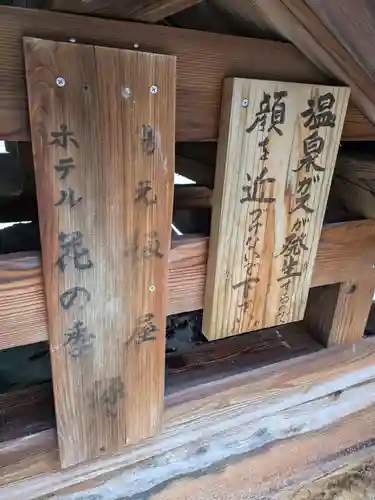 温泉ガスが発生する
顔を近づけないで下さい
湯元 板屋
ホテル 花の季